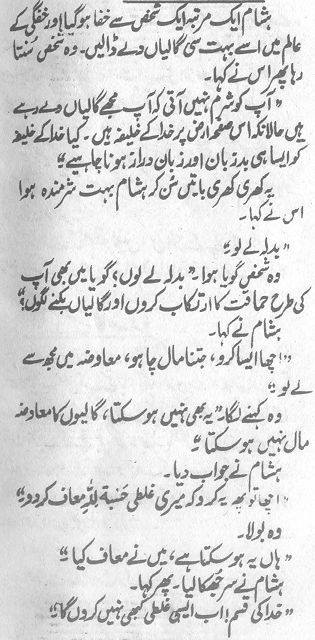 ہشام ایک مرتبہ ایک شخص سے خفا ہو گیا اور خفگی کے
عالم میں اسے بہت سی گالیاں دے ڈالیں۔ وہ شخص سنتا
رہا پھر اس نے کہا۔
"آپ کو شرم نہیں آتی کہ آپ مجھے گالیاں دے رہے
ہیں حالانکہ اس صفحہ ارض پر خدا کے خلیفہ ہیں۔ کیا خدا کے خلیفہ
کو ایسا ہی بدزبان اور زبان دراز ہونا چاہیے؟"
یہ کھری کھری باتیں سن کر ہشام بہت شرمندہ ہوا
اس نے کہا۔
"بدلہ لے لو۔"
وہ شخص گویا ہوا۔ "بدلہ لے لوں؟ گویا میں بھی آپ
کی طرح حماقت کا ارتکاب کروں اور گالیاں بکنے لگوں؟"
ہشام نے کہا۔
"اچھا ایسا کرو، جتنا مال چاہو، معاوضہ میں مجھ سے
لے لو۔"
وہ کہنے لگا۔ "یہ بھی نہیں ہو سکتا، گالیوں کا معاوضہ
مال نہیں ہو سکتا۔"
ہشام نے جواب دیا۔
"اچھا تو پھر یہ کرو کہ میری غلطی حسبۃ للہ معاف کر دو۔"
وہ بولا۔
"ہاں یہ ہو سکتا ہے، میں نے معاف کیا۔"
ہشام نے سر جھکا لیا۔ پھر کہا۔
"خدا کی قسم! اب ایسی غلطی کبھی نہیں کروں گا۔"